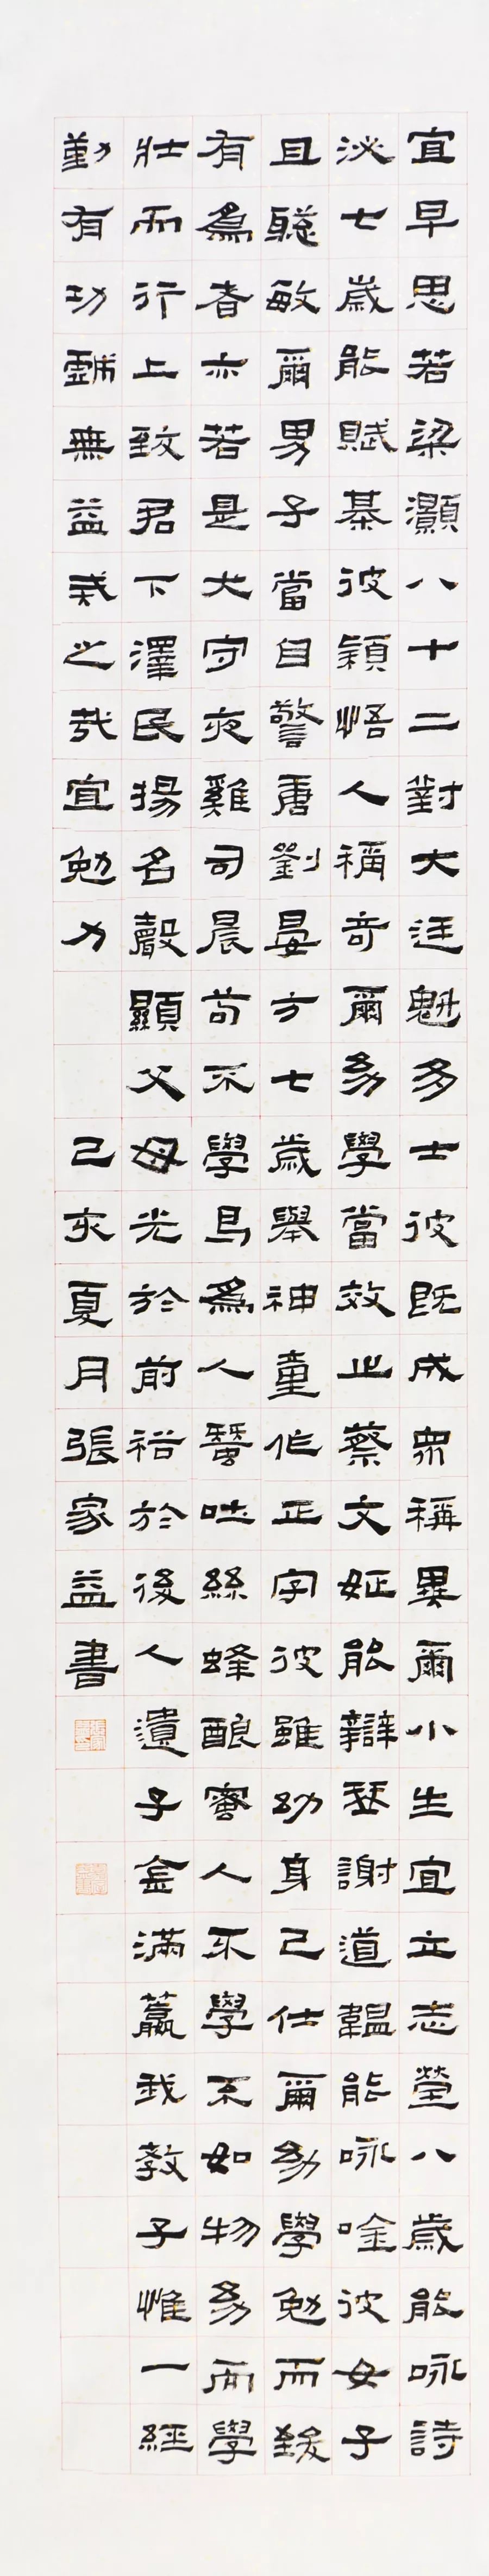 宜早思若梁灝八十二對大廷魁多士彼既成眾稱異爾小生宜立志瑩八歲能咏詩
泌七歲能賦棊彼穎悟人稱奇爾幼學當效之蔡文姬能辯琴謝道韞能咏唫彼女子
且聰敏爾男子當自警唐劉晏方七歲舉神童作正字彼雖幼身己仕爾幼學勉而致
有為者亦若是犬守夜雞司晨苟不學曷為人蠶吐絲蜂釀蜜人不學不如物幼而學
壯而行上致君下澤民揚名聲顯父母光於前裕於後人遺子金滿籯我教子惟一經
勤有功戲無益戒之哉宜勉力 己亥夏月張家益書